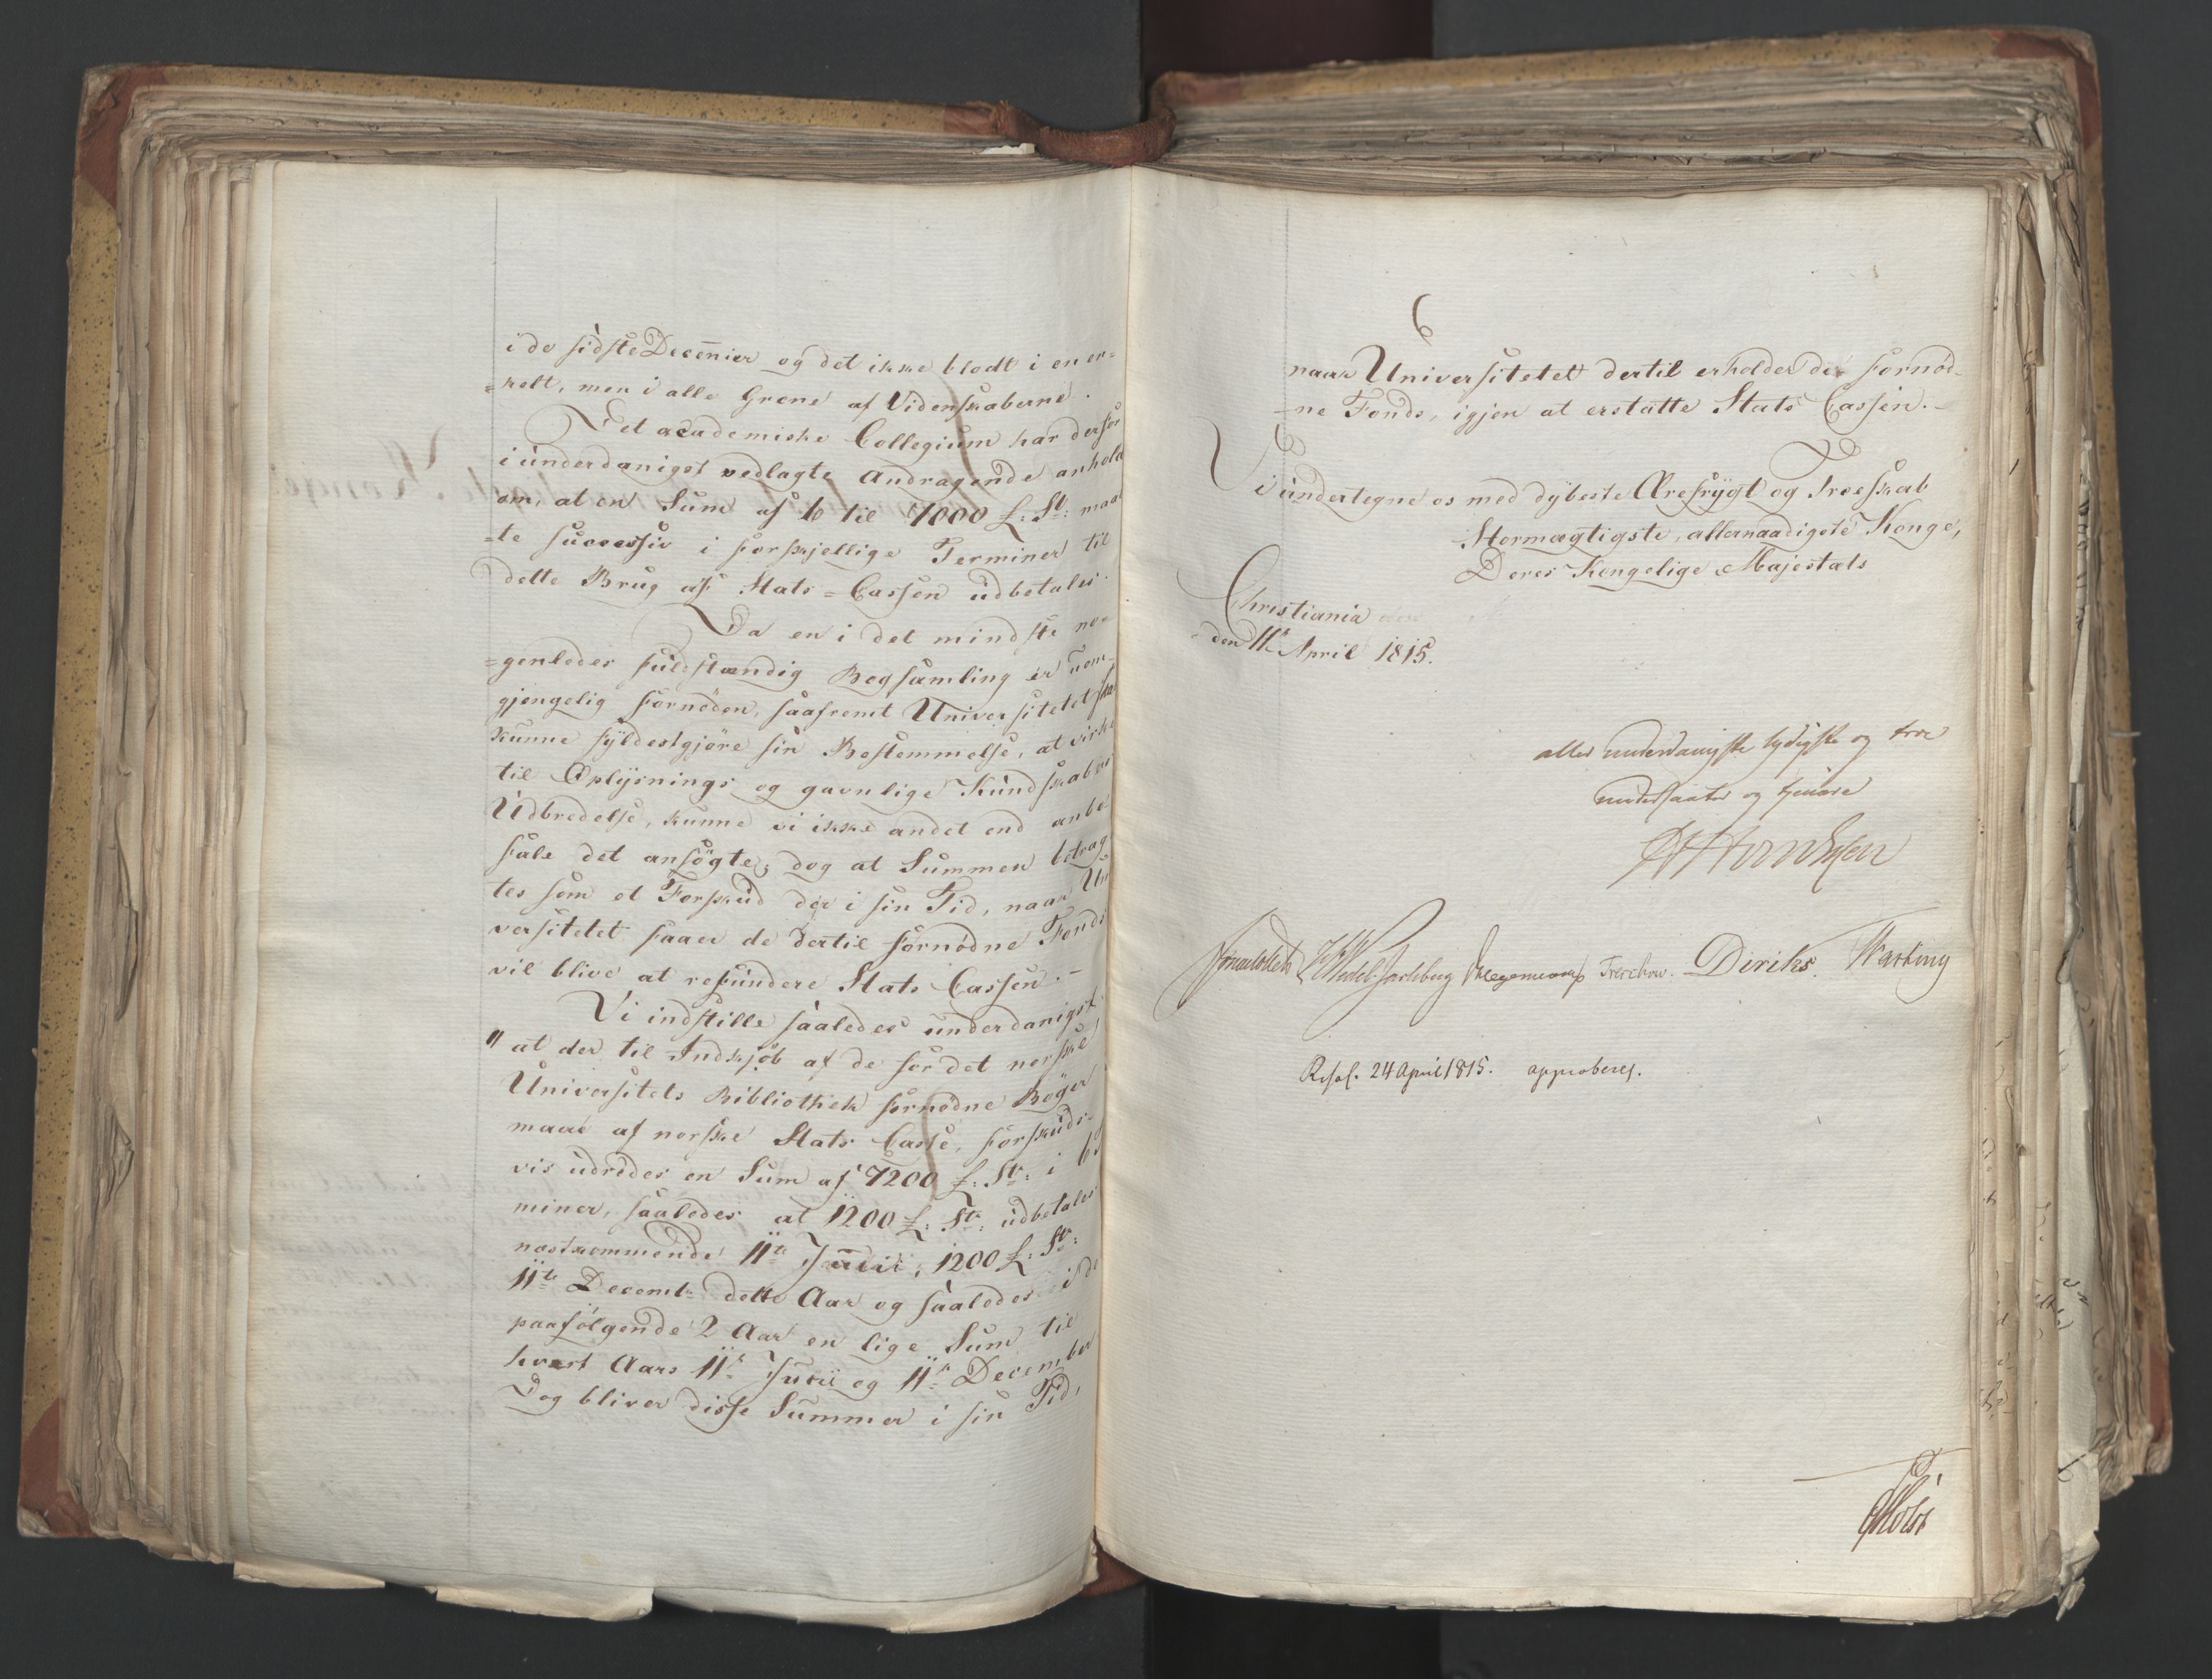 i de sidste Decenñier og det ikke blodt i en en=
=kelt, men i alle Grene af Videnskaberne.
Det academiske Collegium har derfor
i underdanigst vedlagte Andragende anhold
om, at en Sum af 6 til 7000 £: St: maat
=te successiv i forskjellige Terminer til
dette Brug af Stats=Cassen udbetales.
Da en i det mindste no=
=genledes fuldstændig Bogsamling er uom=
gjengelig fornøden, saafremt Universitetet skal
kunne fyldestgjøre sin Bestemmelse, at virke
til Oplysnings og gavnlige Kundskabers
Udbredelse, kunne vi ikke andet end anbe
fale det ansøgte, dog at Summen betrag
tes som et Forskud der i sin Tid, naar Uni
versitetet faaer de dertil fornødne Fonds
vil blive at refundere Stats Cassen.-
Vi indstille saaledes underdanigst
" at der til Indkjøb af de for det norske
Universitets Bibliothek fornødne Bøger
maae af norske Stats Casse, forskuds=
vis udredes en Sum af 7200 £: St: i 6
miner, saaledes at 1200 £: St: udbetales
næstkommende 11te Junii, 1200 £: St:
11te Decembr dette Aar og saaledes i de
paafølgende 2 Aar en lige Sum til
hvert Aars 11te Junii og 11te December
Dog bliver disse Summer i sin Tid,
naar Universitetet dertil erholder de fornød-
-ne Fonds, igjen at erstatte Stats Cassen.-
Vi undertegne os med dybeste Ærefrygt og Troeskab
Stormægtigste, allernaadigste Konge,
Deres Kongelige Majestæts
Christiania
den 11te April 1815.
aller underdanigste lydigste og troe
undersaatter og tjenere
Sommerfeldt HWedel Jarlsberg Hegermann Treschow. Diriks. Hartung
Resol. 24 April 1815. approberes.
Holst